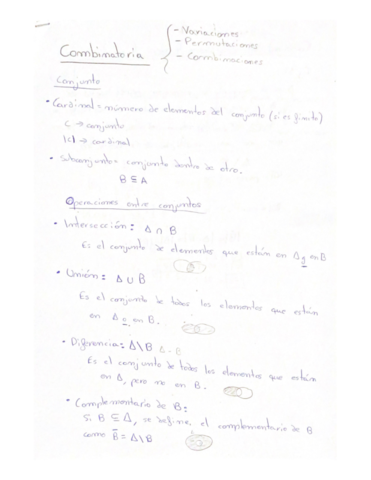 Combinatoria
- Variaciones
- Permutaciones
- Combinaciones
Conjunto
• Cardinal = número de elementos del conjunto (si es finito)
C → conjunto
|C| → cardinal
• Subconjunto = conjunto dentro de otro.
B ⊆ A
Operaciones entre conjuntos
• Intersección: A ∩ B
Es el conjunto de elementos que están en A y en B
• Unión: A ∪ B
Es el conjunto de todos los elementos que están
en A o en B.
• Diferencia: A\B A - B
Es el conjunto de todos los elementos que están
en A, pero no en B.
• Complementario de B:
Si B ⊆ A, se define el complementario de B
como B̅ = A\B